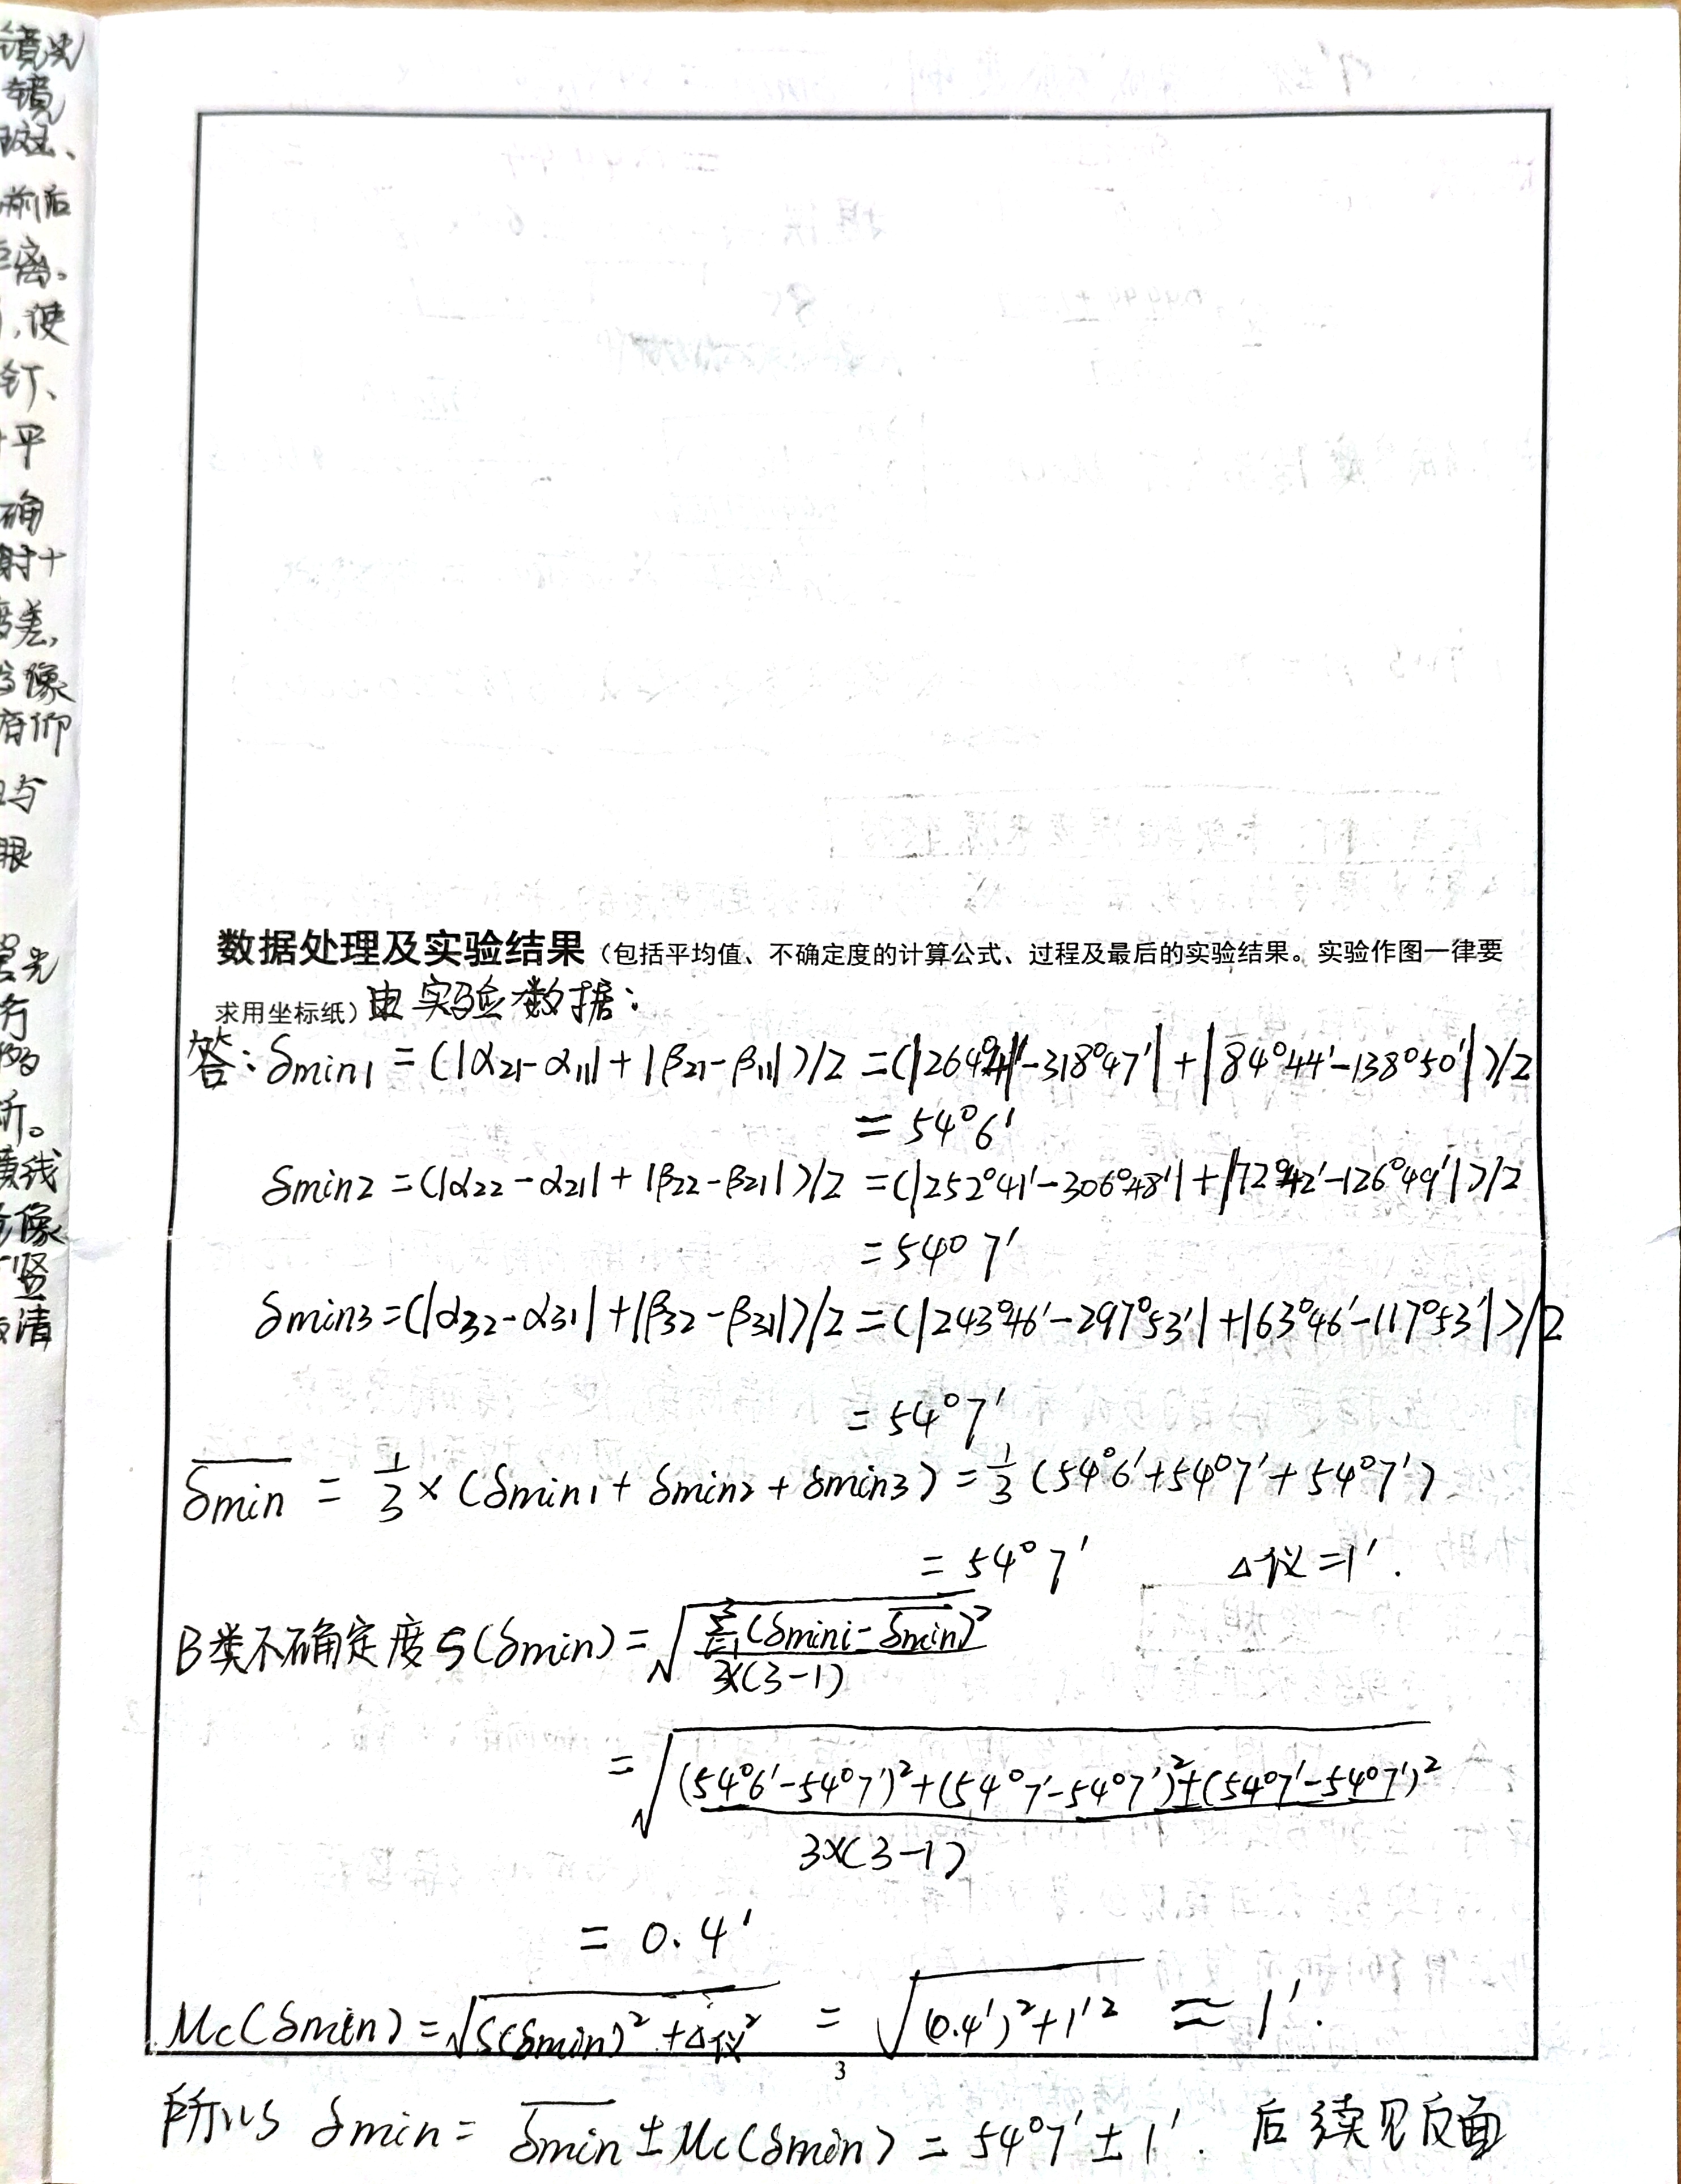 镜光
镜
斑、
前后
距离。
,使
钉、
平
确
射十
差,
像
俯仰
与
眼
光
竖
清
数据处理及实验结果（包括平均值、不确定度的计算公式、过程及最后的实验结果。实验作图一律要
求用坐标纸）由实验数据：
答：δmin1 = (|α21-α11| + |β21-β11|)/2 = (|264°41'-318°47'| + |84°44'-138°50'|)/2
= 54°6'
δmin2 = (|α22-α21| + |β22-β21|)/2 = (|252°41'-306°48'| + |72°42'-126°49'|)/2
= 54°7'
δmin3 = (|α32-α31| + |β32-β31|)/2 = (|243°46'-297°53'| + |63°46'-117°53'|)/2
= 54°7'
δ̅min = 1/3 × (δmin1 + δmin2 + δmin3) = 1/3 (54°6' + 54°7' + 54°7')
= 54°7' Δ仪 = 1'.
B类不确定度 S(δmin) = √(Σ(δmini - δ̅min)²/3×(3-1))
= √((54°6'-54°7')²+(54°7'-54°7')²+(54°7'-54°7')²/3×(3-1))
= 0.4'
Mc(δmin) = √(S(δmin)² + Δ仪²) = √((0.4')²+1'²) ≈ 1'.
3
所以 δmin = δ̅min ± Mc(δmin) = 54°7' ± 1'. 后续见反面